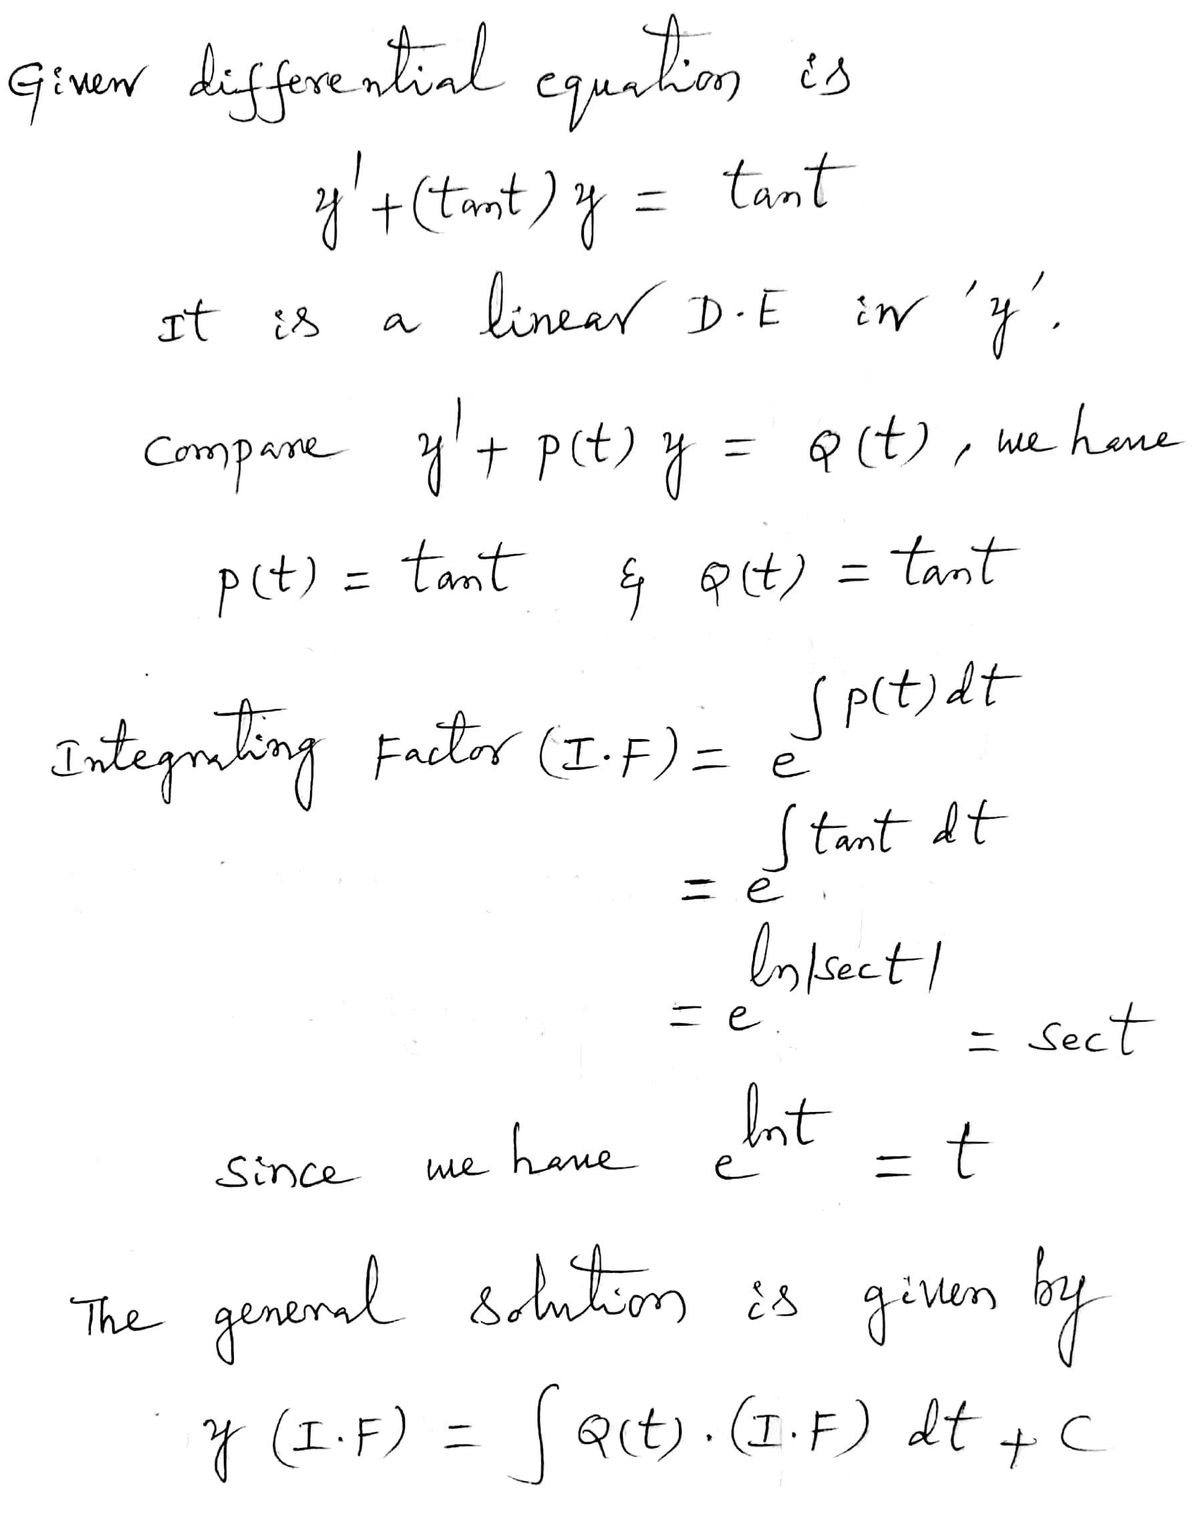 Given differential equation is
y' + (tant) y = tant
It is a linear D.E in 'y'.
Compare y' + p(t) y = Q(t), we have
p(t) = tant & Q(t) = tant
Integrating Factor (I.F) = e^∫p(t)dt
= e^∫tant dt
= e^ln|sect| = sect
Since we have e^lnt = t
The general solution is given by
y (I.F) = ∫Q(t).(I.F) dt + C